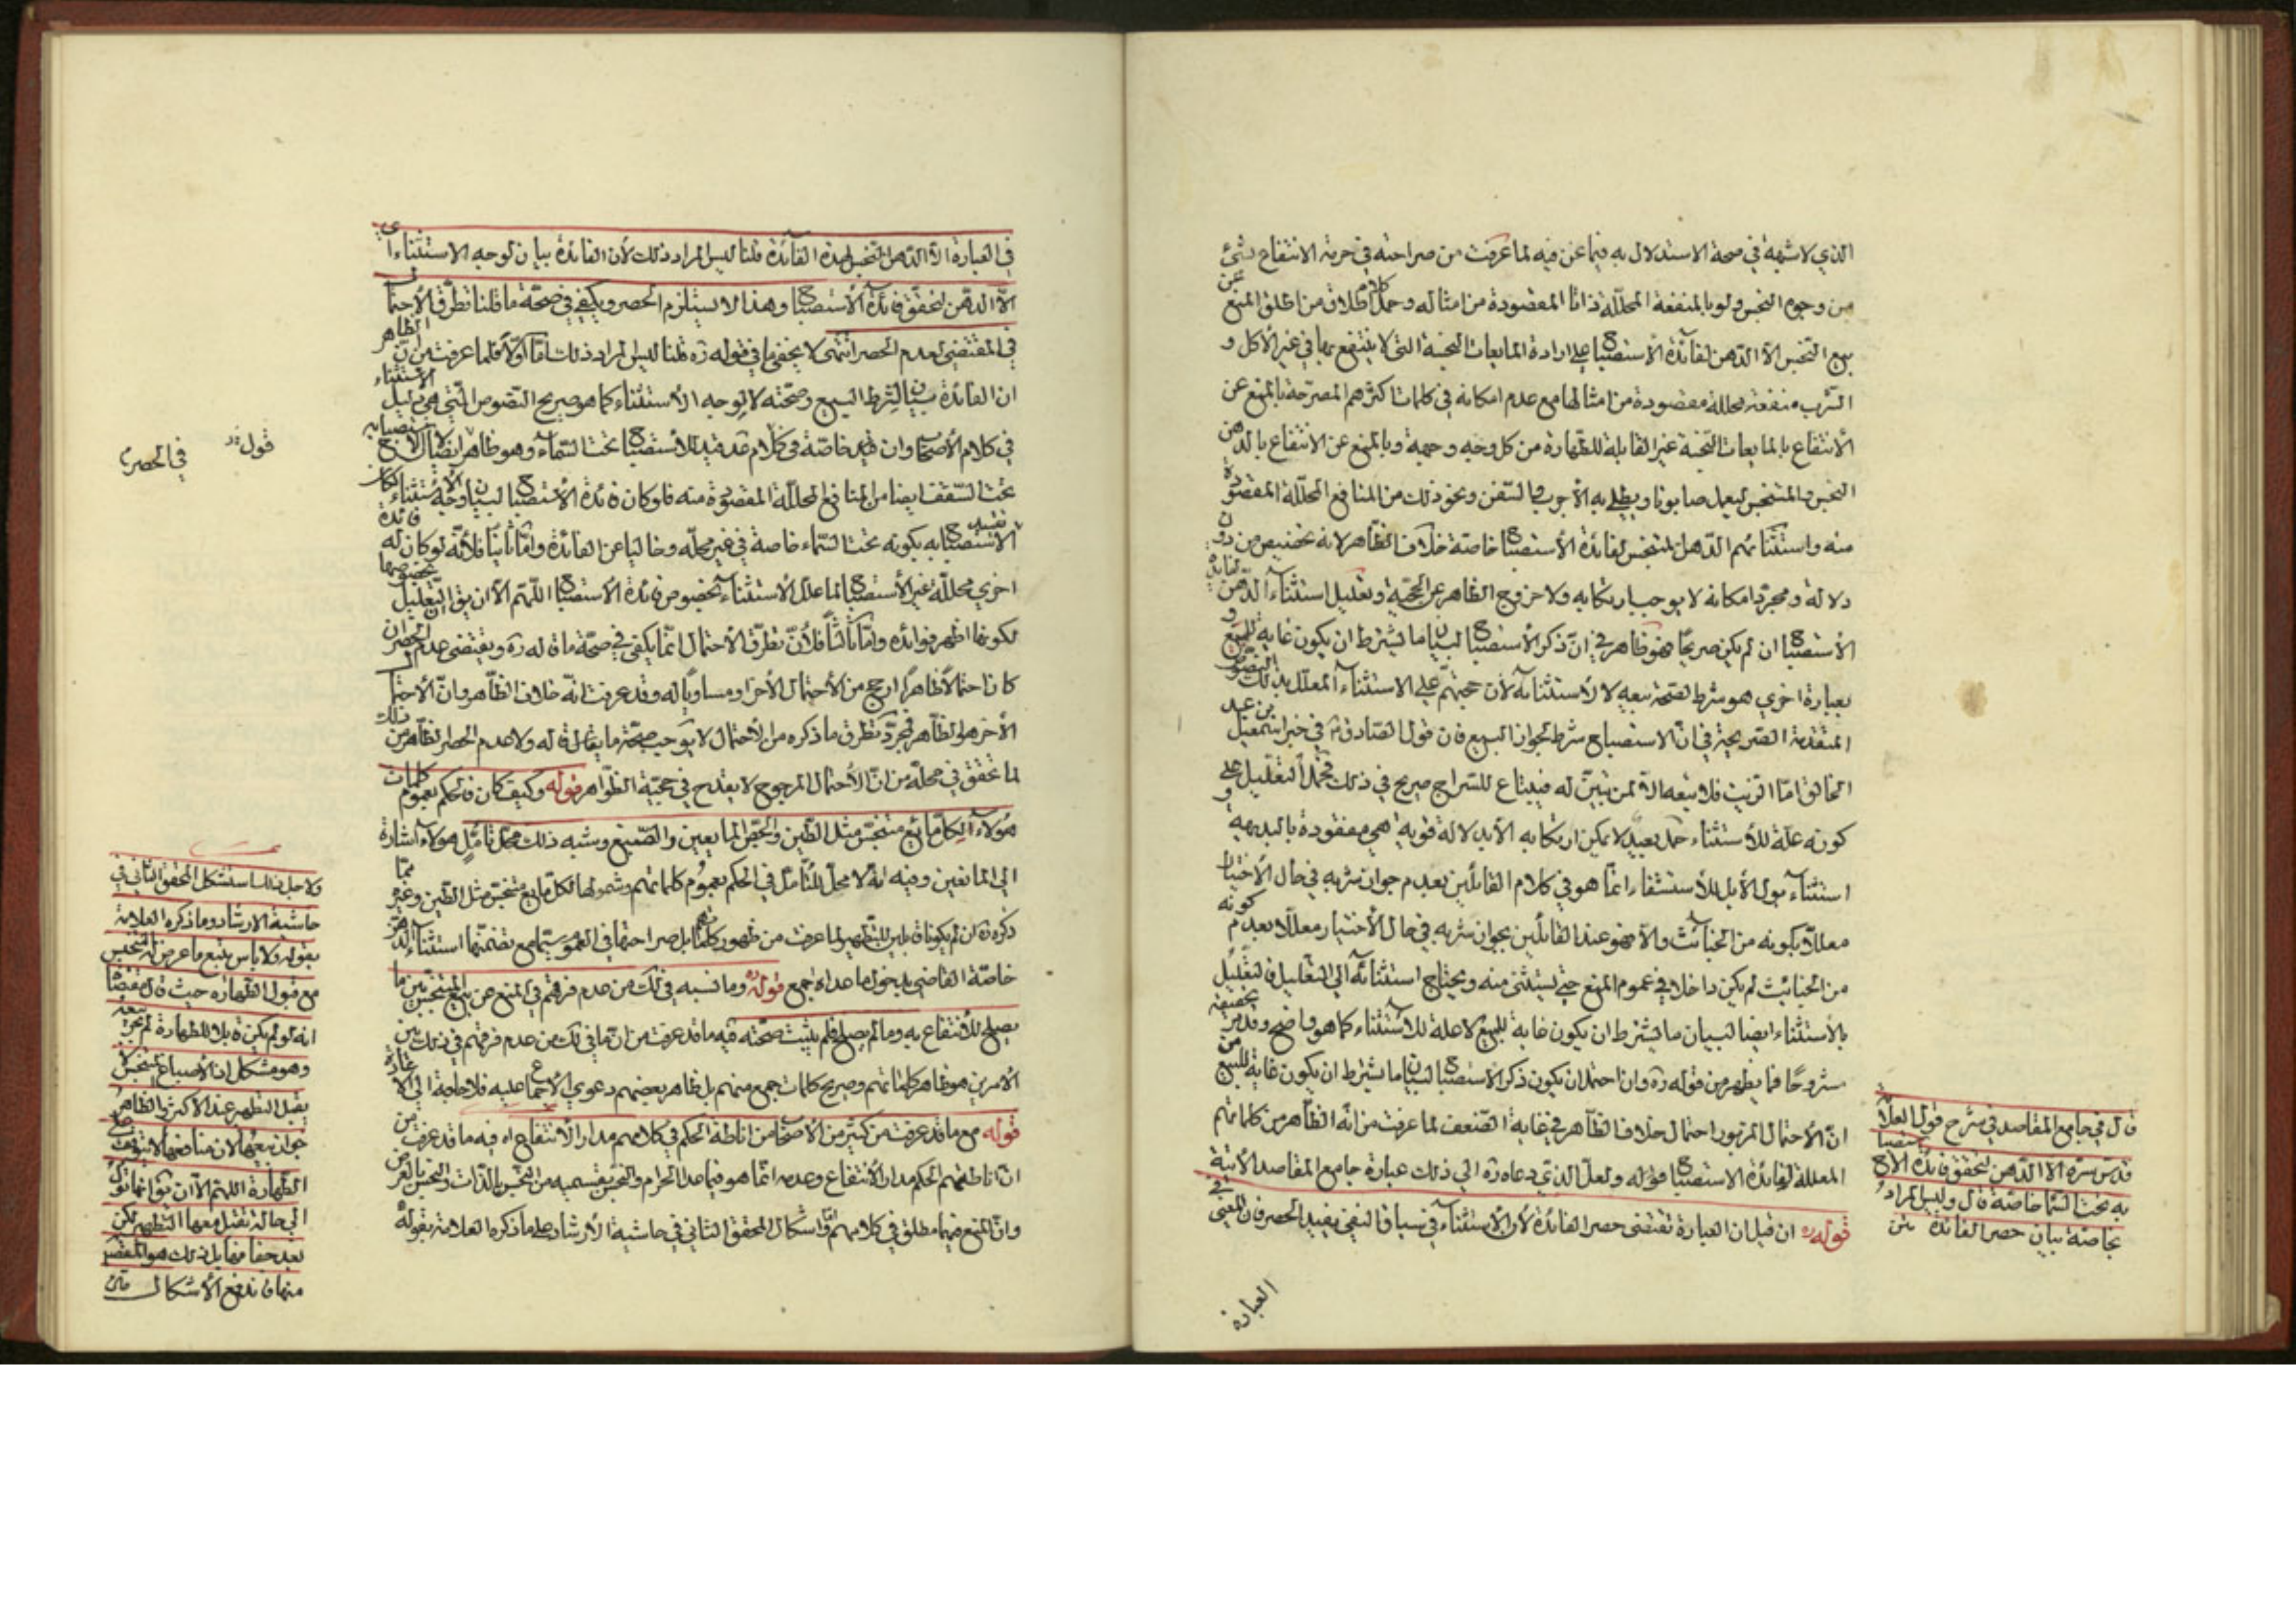 الذي لا شبهة في صحة الاستدلال به فيما عن فيه لما عرفت من صراحته في حرمة الانتفاع بشئ
من وجوه النجس ولو بالمنفعة المحللة ذاتا المقصودة من امثاله وحمل كلام اطلاق من اطلق المنع عن
بيع النجس الا الدهن لفائدة الاستصباح على ارادة المايعات النجسة التي لا ينتفع بها في غير الأكل و
الشرب منفعة محللة مقصودة من امثالها مع عدم امكانه في كلمات اكثرهم المصرحة بالمنع عن
الانتفاع بالمايعات النجسة غير القابلة للطهارة من كل وجه وجهة وبالمنع عن الانتفاع بالدهن
النجس والمتنجس ليعمل صابونا ويطلى به الأجرب والسفن ونحو ذلك من المنافع المحللة المقصودة
منه واستثنائهم الدهن المتنجس لفائدة الاستصباح خاصة خلاف الظاهر لانه تخصيص من دون
دلالة ومجرد امكانه لا يوجب ارتكابه ولا خروج الظاهر عن الحجية وتعليل استثناء الدهن لفائدة
الاستصباح ان لم يكن صريحا فهو ظاهر في ان ذكر الاستصباح لبيان ما يشترط ان يكون غاية للبيع و
بعبارة اخرى هو شرط لصحة بيعه لا لاستثنائه لأن حجتهم على الاستثناء المعلل بذلك النصوص
المتقدمة الصريحة في ان الاستصباح شرط لجواز البيع فان قول الصادق في خبر اسمعيل بن عبد
الخالق اما الزيت فلا تبعه الا لمن تبين له فيبتاع للسراج صريح في ذلك فحمل التعليل على
كونه علة للاستثناء حمل بعيد لا يمكن ارتكابه الا بدلالة قوية هي مفقودة بالبديهة و
استثناء بول الأبل للاستشفاء انما هو في كلام القائلين بعدم جواز شربه في حال الاختيار
معللا بكونه من الخبائث والا فهو عند القائلين بجواز شربه في حال الأختيار معللا بعدم كونه
من الخبائث لم يكن داخلا في عموم المنع حتى يستثنى منه ويحتاج استثنائه الى التعليل فالتعليل
بالأستثناء ايضا لبيان ما يشترط ان يكون غاية للبيع لا علة للاستثناء كما هو واضح وقد مر تحقيقه
مشروحا فما يظهر من قوله ره وان احتمل ان يكون ذكر الاستصباح لبيان ما يشترط ان يكون غاية للبيع من
ان الاحتمال المزبور احتمال خلاف الظاهر في غاية الضعف لما عرفت من انه الظاهر من كلماتهم
المعللة لفائدة الاستصباح قوله ولعل الذي دعاه ره الى ذلك عبارة جامع المقاصد الأتية
قوله ره ان قيل ان العبارة تقتضى حصر الفائدة لأن الاستثناء في سياق النفى يفيد الحصر فان المعنى في
العبارة
قال في جامع المقاصد في شرح قول العلامة
قدس سره الا الدهن لتحقق فائدة الاستصباح
به تحت السماء خاصة قال وليس المراد
بخاصة بيان حصر الفائدة
في العبارة الا الدهن النجس لهذه الفائدة قلنا ليس المراد ذلك لأن الفائدة بيان لوجه الاستثناء اي
الا الدهن لتحقق فائدة الأستصباح وهذا لا يستلزم الحصر ويكفى في صحة ما قلنا تطرق الأحتمال
في المقتضى لعدم الحصر انتهى لا يخفى ما في قوله ره قلنا ليس المراد ذلك اما اولا فلما عرفت من ان الظاهر
ان الفائدة بيان لشرط البيع وصحته لا لوجه الأستثناء كما هو صريح النصوص التي هي دليل الاستثناء
في كلام الأصحاب وان قيد خاصة في كلام قد قيد للأستصباح تحت السماء وهو ظاهر
تحت السقف ايضا من المنافع المحللة المقصودة منه فلو كان فائدة الأستصباح لبيان وجه الأستثناء لكان
الأستصباح به بكونه تحت السماء خاصة في غير محله وخاليا عن الفائدة واما ثانيا فلأنه لو كان له فائدة
اخرى محللة غير الأستصباح لما علل الأستثناء بخصوص فائدة الأستصباح اللهم الا ان يق ان التعليل بخصوصها
لكونها اظهر فوائده واما ثالثا فلأن تطرق الأحتمال انما يكفى في صحة ما قاله ره ويقتضى عدم الحصر ان
كان احتمالا ظاهرا ارجح من الأحتمال الأخر او مساويا له وقد عرفت انه خلاف الظاهر وان الأحتمال
الأخر هو الظاهر فمجرد تطرق ما ذكره من الأحتمال لا يوجب صحة ما قاله ولا عدم الحصر الظاهر من ذلك
لما تحقق في محله من ان الأحتمال المرجوح لا يقدح في حجية الظواهر قوله وكيف كان فالحكم بعموم كلمات
هؤلاء لكل مايع متنجس مثل الطين والجص المايعين والصبغ وشبه ذلك محل تأمل هولاء اشارة
الى المانعين وفيه انه لا محل للتأمل في الحكم بعموم كلماتهم وشمولها لكل مايع متنجس مثل الطين وغيره مما
ذكره ان لم يكونا قابلين للتطهير لما عرفت من ظهور كلماتهم بل صراحتها في العموم سيما مع تضمنها استثناء الدهن
خاصة القاضي بدخول ما عداه اجمع قوله ره وما نسبه في لك من عدم فرقهم في المنع عن بيع المتنجس بين ما
يصلح للأنتفاع به وما لم يصلح فلم يثبت صحته فيه ما قد عرفت من ان ما في لك من عدم فرقهم في ذلك بين
الأمرين هو ظاهر كلماتهم وصريح كلمات جمع منهم بل ظاهر بعضهم دعوى الأجماع عليه فلا حاجة الى الأعادة
قوله مع ما قد عرفت من كثير من الأصحاب من اناطة الحكم في كلامهم مدار الأنتفاع اه فيه ما قد عرفت من
ان اناطتهم الحكم مدار الأنتفاع وعدمه انما هو فيما عدا الحرام والنجس بقسميه من النجس بالذات والنجس بالعرض
وان المنع فيهما مطلق في كلامهم واما اشكال المحقق الثاني في حاشية الأرشاد على ما ذكره العلامة بقوله
قوله
في الحصر
ولاجل ذلك استشكل المحقق الثاني في
حاشية الارشاد وما ذكره العلامة
بقوله ولا باس ببيع ما عرض له التنجيس
مع قبول الطهارة حيث قال مقتضاه
انه لو لم يكن قابلا للطهارة لم يجز بيعه
وهو مشكل اذ الأصباغ المتنجسة لا
يقبل التطهير عند الاكثر والظاهر
جواز بيعها لان منافعها لا تتوقف على
الطهارة اللهم الا ان يق انها تؤل
الى حالة تقبل معها التطهير لكن
بعد جفافها بل ذلك هو المقصود
منها فاندفع الأشكال